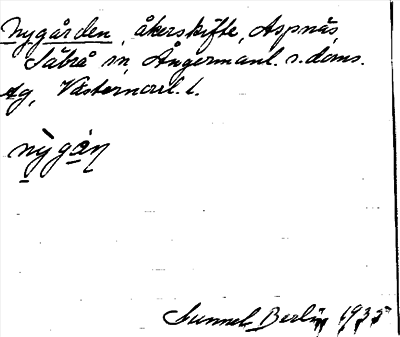 Nygården, åkerskifte, Aspnäs,
Säbrå sn, Ångermanl. s. doms.
tg, Västernorrl. l.
nỳgáṇ
Gunnel Berlin 1935